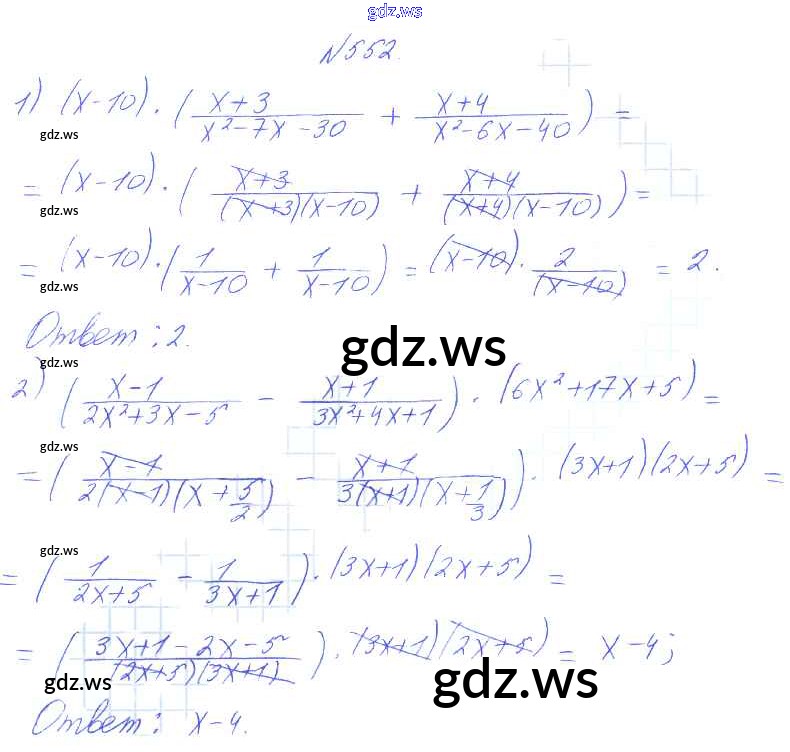 gdz.ws
N552.
1) (x-10) · ( x+3 / x²-7x-30 + x+4 / x²-6x-40 ) =
gdz.ws
= (x-10) · ( x+3 / (x+3)(x-10) + x+4 / (x+4)(x-10) ) =
gdz.ws
= (x-10) · ( 1 / x-10 + 1 / x-10 ) = (x-10) · 2 / (x-10) = 2.
gdz.ws
Ответ: 2.
gdz.ws
gdz.ws
2) ( x-1 / 2x²+3x-5 - x+1 / 3x²+4x+1 ) · (6x²+17x+5) =
gdz.ws
= ( x-1 / 2(x-1)(x+5/2) - x+1 / 3(x+1)(x+1/3) ) · (3x+1)(2x+5) =
gdz.ws
= ( 1 / 2x+5 - 1 / 3x+1 ) · (3x+1)(2x+5) =
= ( 3x+1-2x-5 / (2x+5)(3x+1) ) · (3x+1)(2x+5) = x-4;
gdz.ws
gdz.ws
Ответ: x-4.